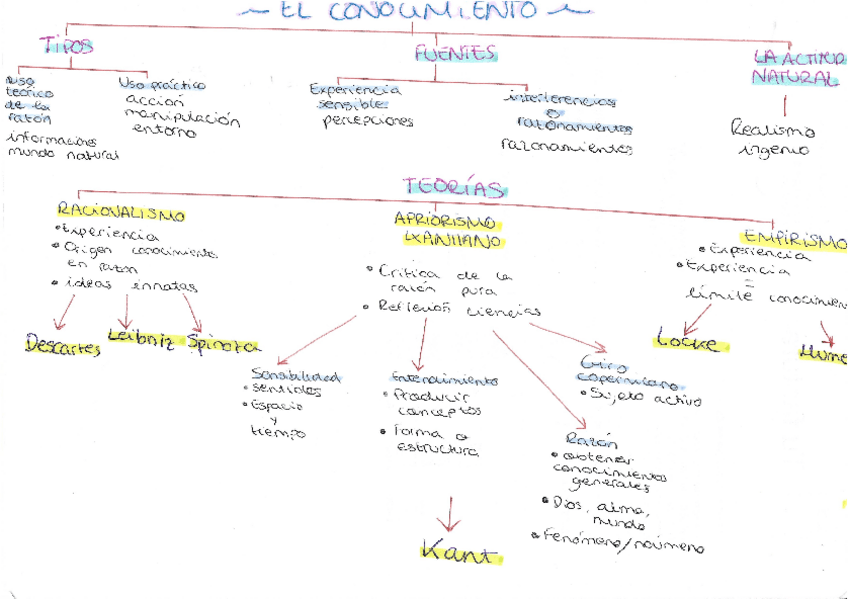 ~ EL CONOCIMIENTO ~
TIPOS
FUENTES
LA ACTITUD
NATURAL
uso
teórico
de la
razón
informaciones
mundo natural
Uso práctico
acción
manipulación
entorno
Experiencia
sensible:
percepciones
interferencias
o
razonamientos
razonamientos
Realismo
ingenio
TEORÍAS
RACIONALISMO
• Experiencia
• Origen conocimiento
en razón
• ideas innatas
Descartes
Leibniz
Spinoza
APRIORISMO
KANTIANO
• Crítica de la
razón pura
• Reflexión ciencias
EMPIRISMO
• Experiencia
• Experiencia
=
límite conocimien
Locke
Hume
Sensibilidad
• sentidos
• Espacio
y
tiempo
Entendimiento
• Producir
conceptos
• forma o
estructura
Giro
copernicano
• Sujeto activo
Razón
• obtener
conocimientos
generales
• Dios, alma,
mundo
• Fenómeno/noúmeno
Kant